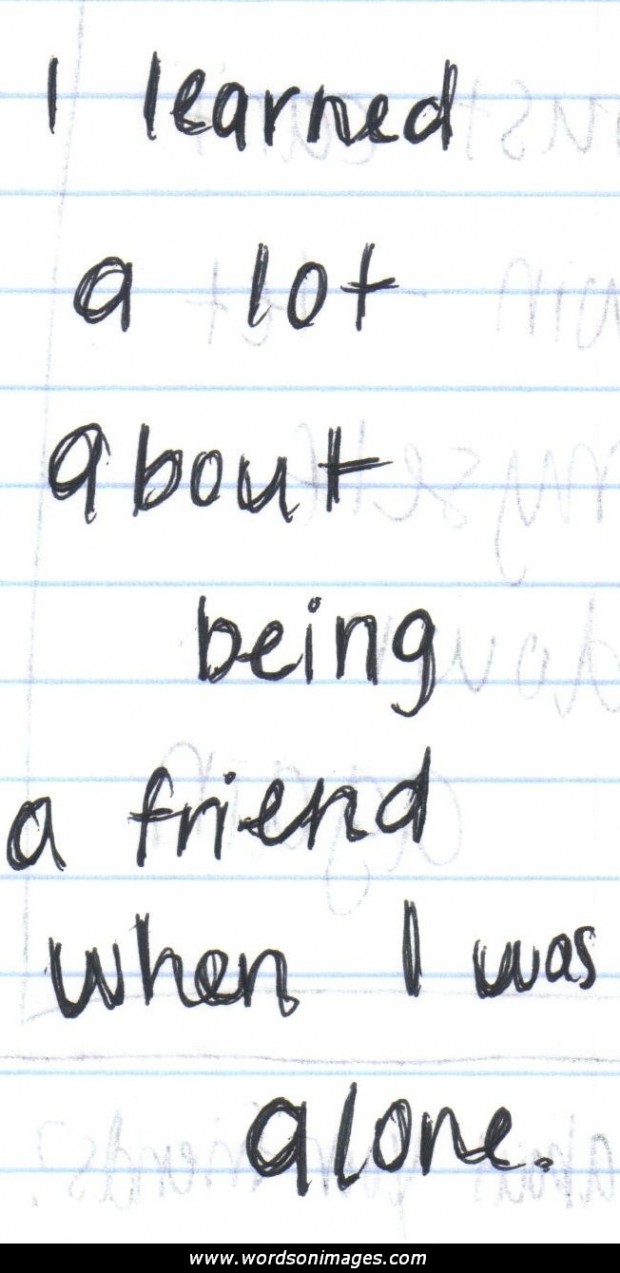 I learned
a lot
about
being
a friend
when I was
alone.
www.wordsonimages.com